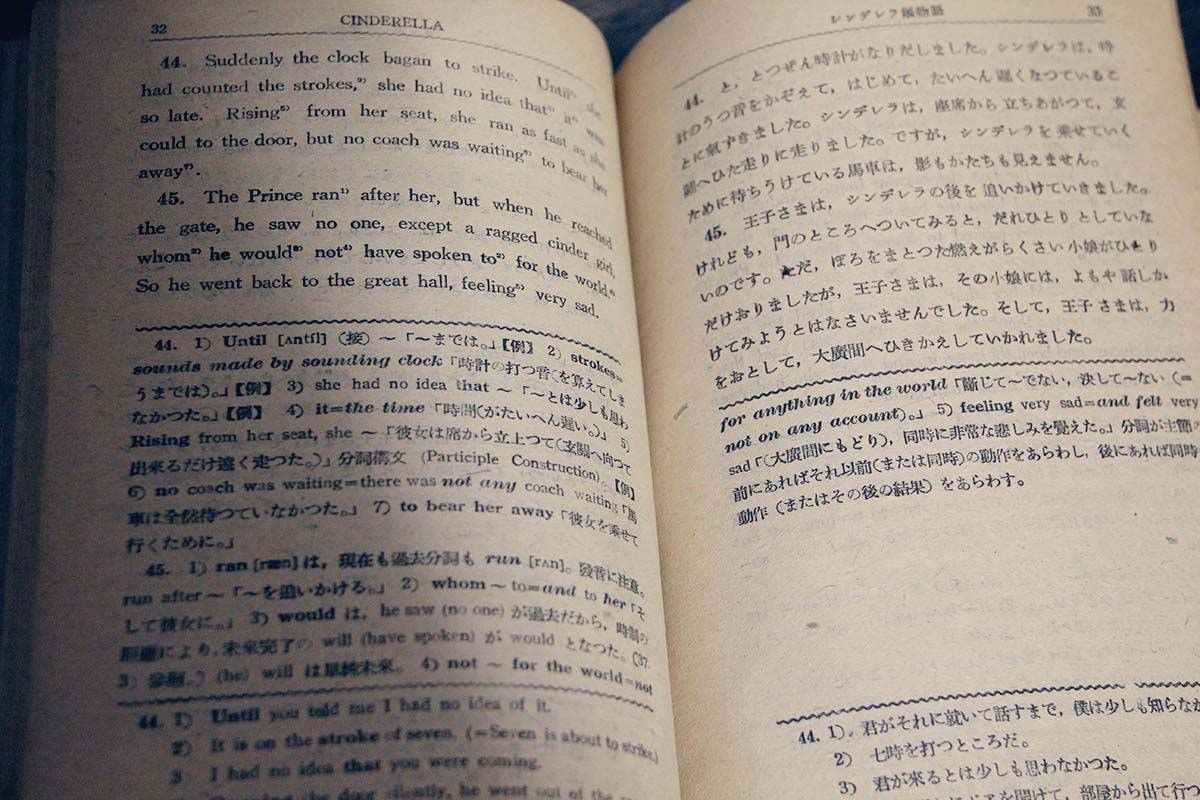 32 CINDERELLA
44. Suddenly the clock bagan to strike. Until¹⁾ she
had counted the strokes,²⁾ she had no idea that³⁾ it⁴⁾ was
so late. Rising⁵⁾ from her seat, she ran as fast as she
could to the door, but no coach was waiting⁶⁾ to bear her
away⁷⁾.
45. The Prince ran¹⁾ after her, but when he reached
the gate, he saw no one, except a ragged cinder girl,
whom²⁾ he would³⁾ not⁴⁾ have spoken to²⁾ for the world.⁴⁾
So he went back to the great hall, feeling⁵⁾ very sad.
44. 1) Until [ʌntíl] (接) ~「~までは。」【例】 2) strokes=
sounds made by sounding clock「時計の打つ音(を算えてしま
うまでは)。」【例】 3) she had no idea that ~「~とは少しも思わ
なかつた。」【例】 4) it=the time「時間(がたいへん遅い。)」 5)
Rising from her seat, she ~「彼女は席から立上つて(玄關へ向つて
出来るだけ速く走つた。)」分詞構文 (Participle Construction)。【例】
6) no coach was waiting=there was not any coach waiting「馬
車は全然待つていなかつた。」 7) to bear her away「彼女を乗せて
行くために。」
45. 1) ran [ræn] は, 現在も過去分詞も run [rʌn]。発音に注意。
run after ~「~を追いかける。」 2) whom ~ to=and to her「そ
して彼女に。」 3) would は, he saw (no one) が過去だから, 時制の
により, 未来完了の will (have spoken) が would となつた。(37.
3) 参照。) (he) will は單純未来。 4) not ~ for the world=not
44. 1) Until you told me I had no idea of it.
2) It is on the stroke of seven. (=Seven is about to strike.)
3) I had no idea that you were coming.
the door silently, he went out of the
シンデレラ姫物語 33
44. と, とつぜん時計がなりだしました。シンデレラは, 時
計のうつ音をかぞえて, はじめて, たいへん遅くなつているこ
とに氣ずきました。シンデレラは, 座席から立ちあがつて, 玄
關へひた走りに走りました。ですが, シンデレラを乗せていく
ために待ちうけている馬車は, 影もかたちも見えません。
45. 王子さまは, シンデレラの後を追いかけていきました。
けれども, 門のところへついてみると, だれひとりとしていな
いのです。ただ, ぼろをまとつた燃えがらくさい小娘がひとり
だけおりましたが, 王子さまは, その小娘には, よもや話しか
けてみようとはなさいませんでした。そして, 王子さまは, 力
をおとして, 大廣間へひきかえしていかれました。
for anything in the world「斷じて~でない, 決して~ない (=
not on any account)。」 5) feeling very sad=and felt very
sad「(大廣間にもどり), 同時に非常な悲しみを覺えた。」分詞が主節の
前にあればそれ以前(または同時)の動作をあらわし, 後にあれば同時
動作 (またはその後の結果) をあらわす。
44. 1). 君がそれに就いて話すまで, 僕は少しも知らなか
2) 七時を打つところだ。
3) 君が來るとは少しも思わなかつた。
ドアを開けて, 部屋から出て行つ